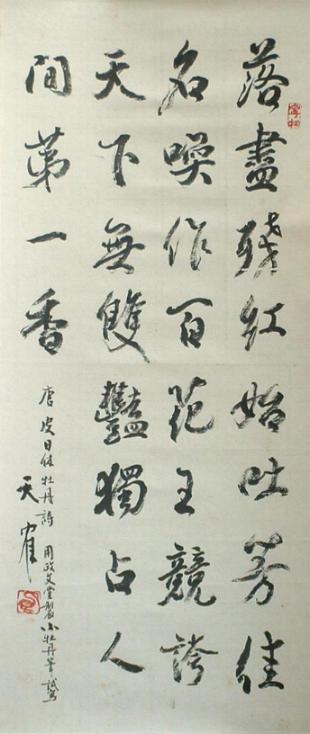 落盡殘紅始吐芳佳
名喚作百花王競誇
天下無雙豔獨占人
間第一香
唐皮日休牡丹詩 用政文堂製小牡丹筆
天